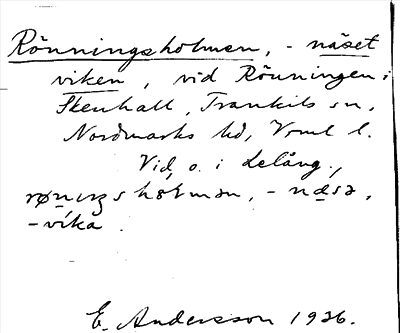 Rönningsholmen, - näset
viken, vid Rönningen i
Skenhall, Trankils sn,
Nordmarks hd, Vrml l.
Vid, o. i Lelång.,
-víka.
E. Andersson 1926.